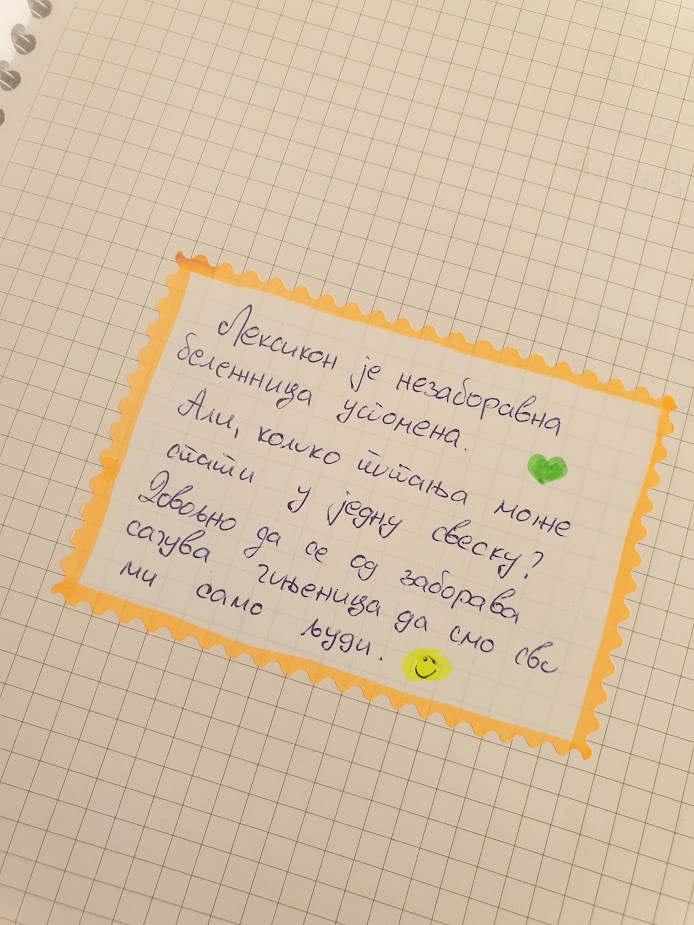 Лексикон је незаборавна
бележница успомена.
Али, колико питања може
стати у једну свеску?
Довољно да се од заборава
сачува чињеница да смо сви
ми само људи.